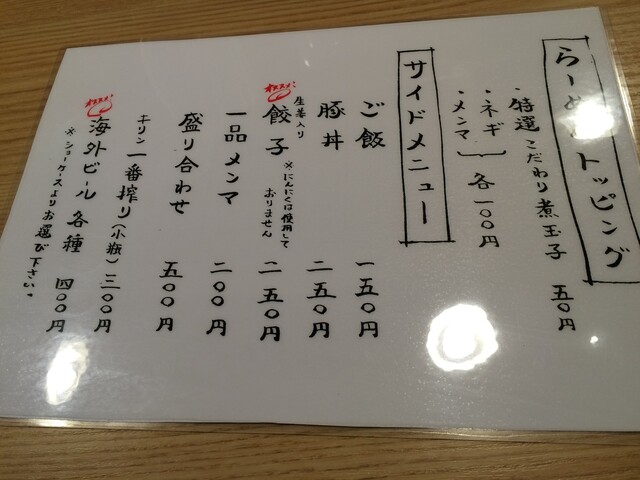 らーめんトッピング
・特選こだわり煮玉子 五〇円
・ネギ
・メンマ
各一〇〇円
サイドメニュー
ご飯 一五〇円
豚丼 二五〇円
オススメ!
生姜入り
餃子 ※にんにくは使用しておりません 二五〇円
一品メンマ 二〇〇円
盛り合わせ 五〇〇円
キリン一番搾り(小瓶) 三〇〇円
オススメ!
海外ビール各種 四〇〇円
※ショーケースよりお選び下さい。